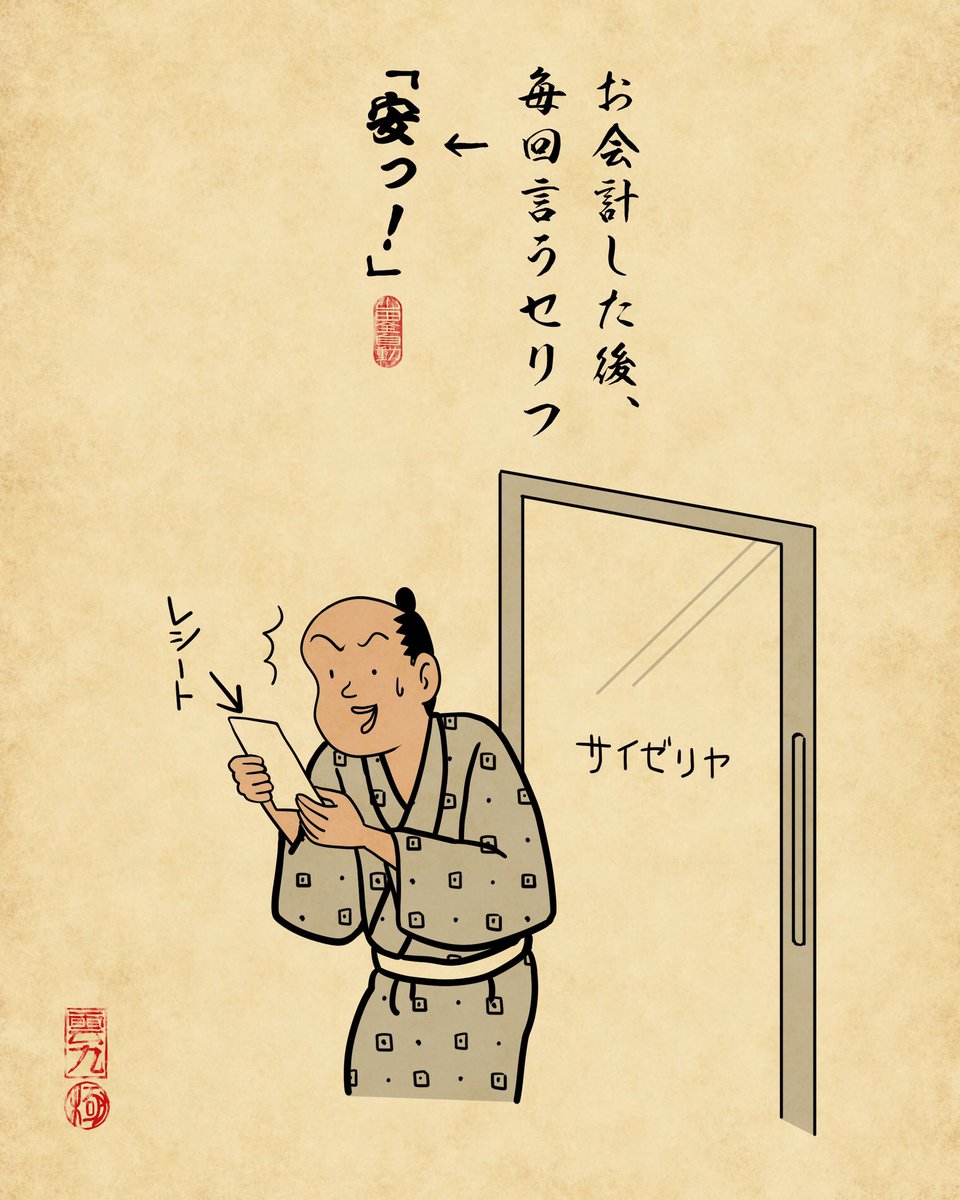 お会計した後、
毎回言うセリフ
←
「安っ！」
レシート
サイゼリヤ